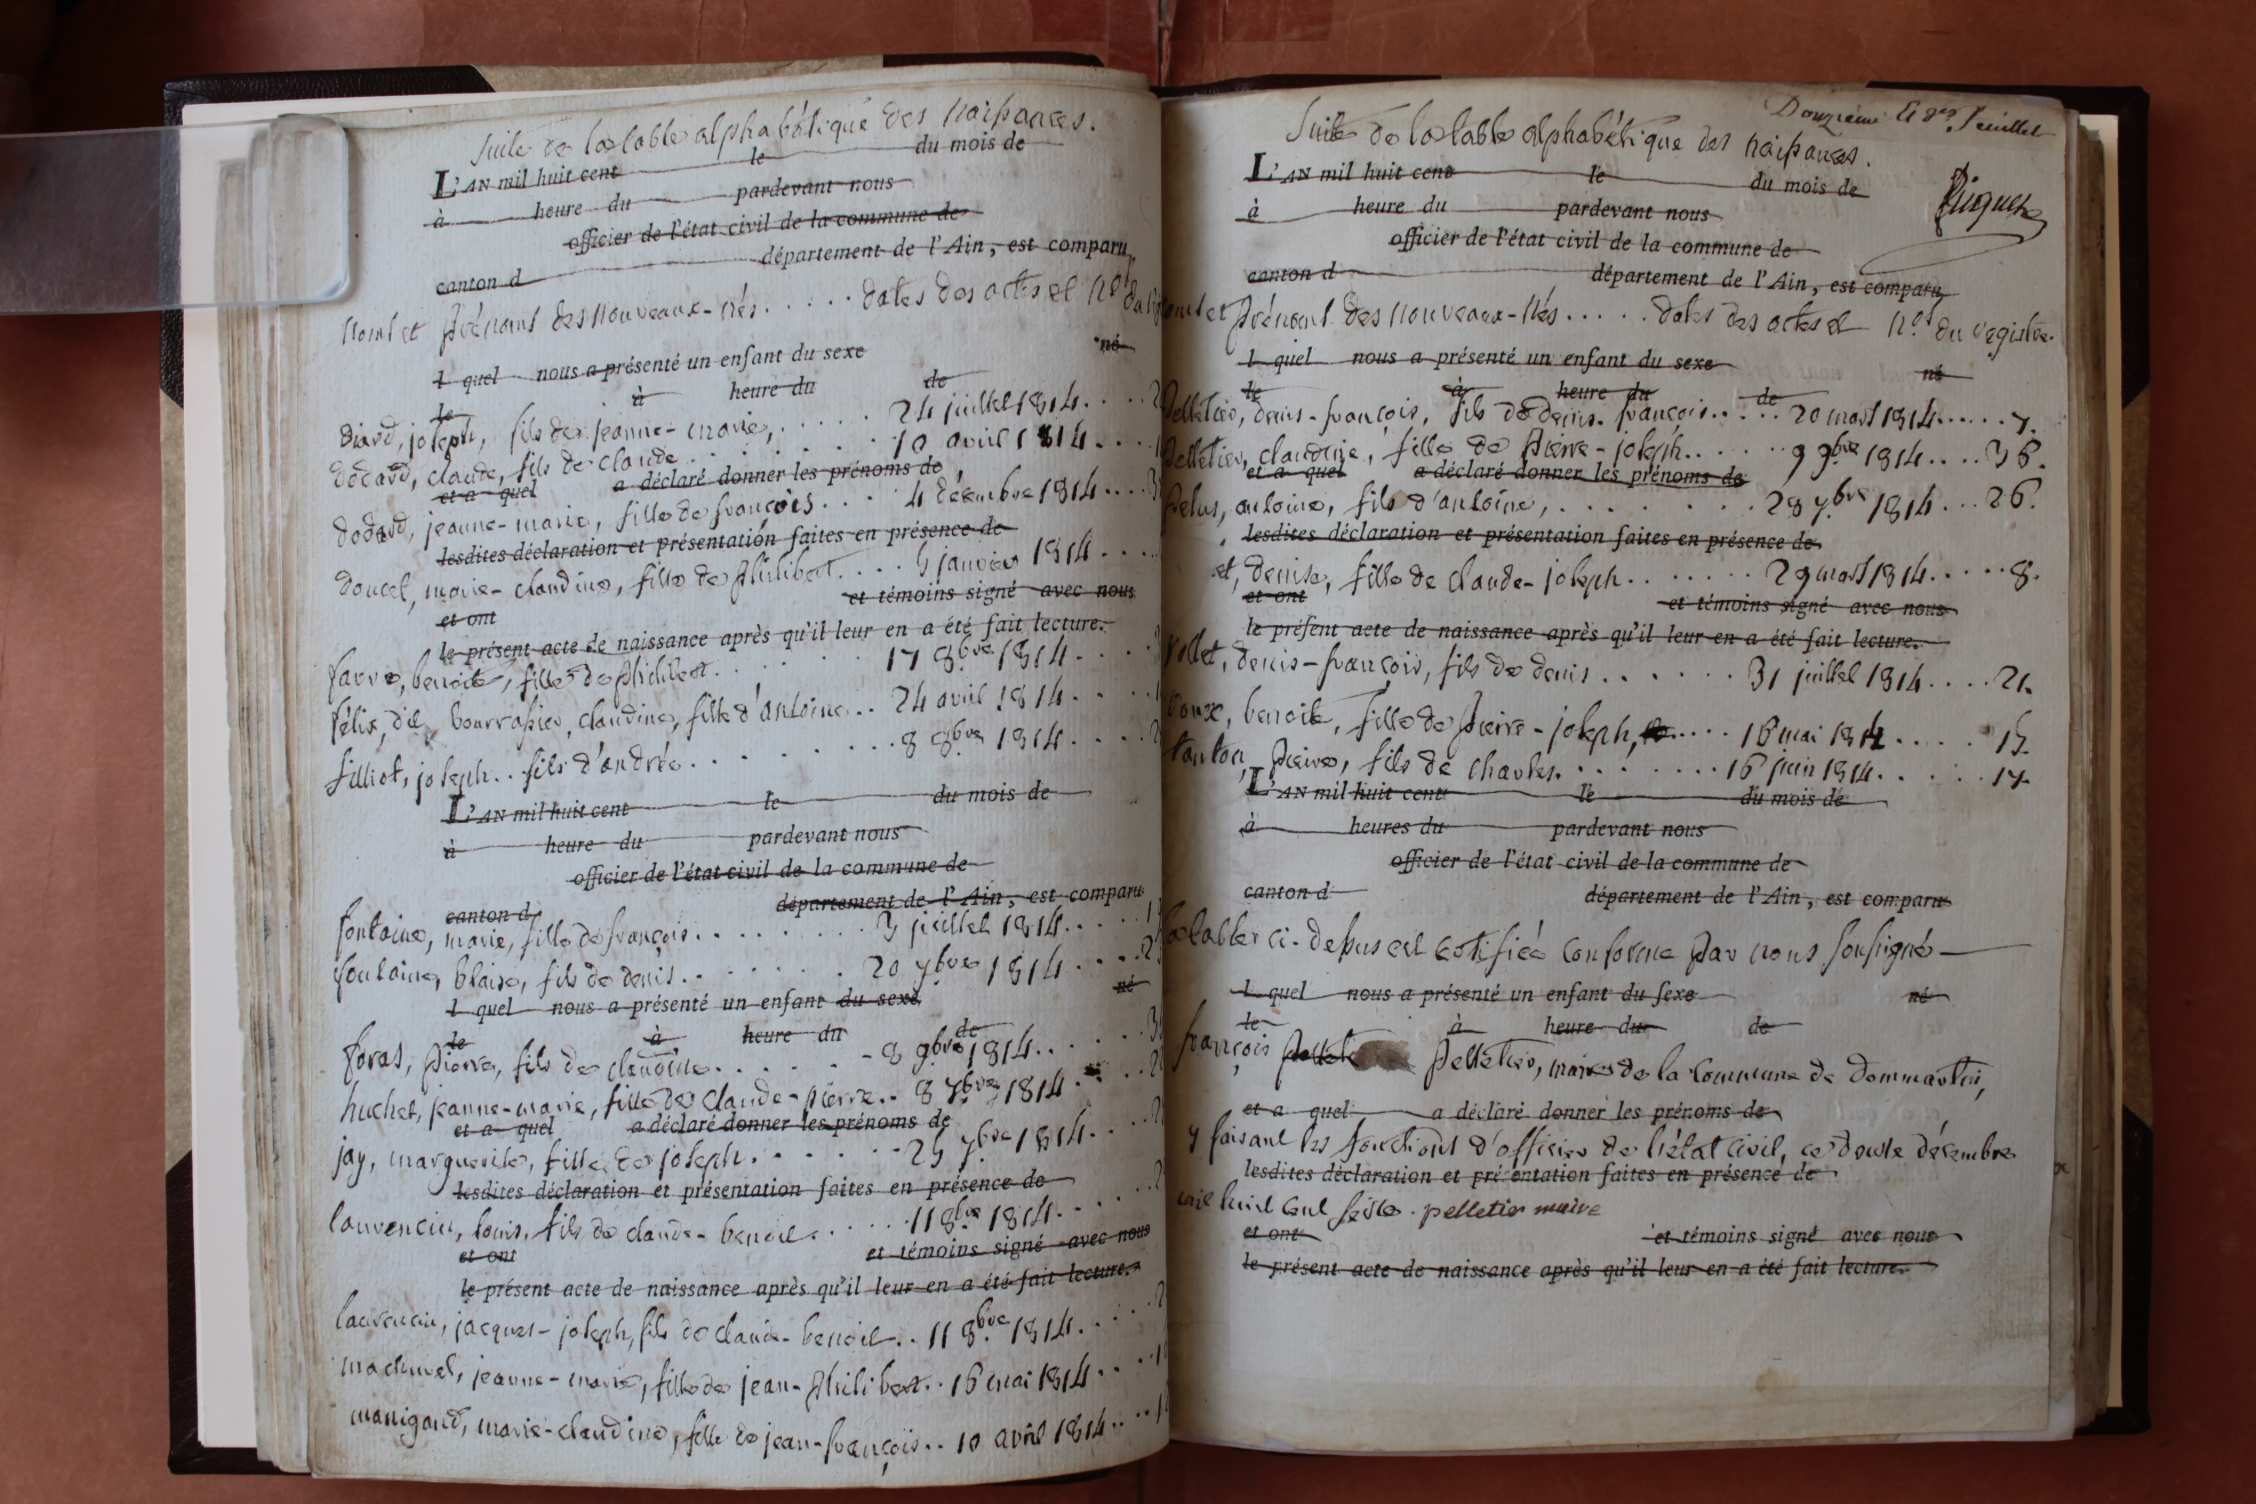 Suite de la table alphabétique des naissances.
L'AN mil huit cent le du mois de
à heure du pardevant nous
officier de l'état civil de la commune de
canton d département de l'Ain, est comparu
noms et prénoms des nouveaux-nés..... dates des actes et Nos du
l quel nous a présenté un enfant du sexe né
le à heure du de
diard, joseph, fils de jeanne-marie,..... 24 juillet 1814....
dodard, claude, fils de claude...... 10 avril 1814....
et a quel a déclaré donner les prénoms de
dodard, jeanne-marie, fille de françois.... 4 décembre 1814....
lesdites déclaration et présentation faites en présence de
doucet, marie-claudine, fille de philibert.... 5 janvier 1814....
et ont et témoins signé avec nous
le présent acte de naissance après qu'il leur en a été fait lecture.
favre, benoite, fille de philibert....... 17 8bre 1814....
félix, dit bourrassier, claudine, fille d'antoine... 24 avril 1814....
filliot, joseph.. fils d'andrée......... 8 8bre 1814....
L'AN mil huit cent le du mois de
à heure du pardevant nous
officier de l'état civil de la commune de
canton d département de l'Ain, est comparu
fontaine, marie, fille de françois......... 3 juillet 1814.....
fontaine, blaise, fils de denis....... 20 7bre 1814....
l quel nous a présenté un enfant du sexe né
le à heure du de
foras, pierre, fils de claudine...... 8 9bre 1814.....
huchet, jeanne-marie, fille de claude-pierre.. 8 7bre 1814
et a quel a déclaré donner les prénoms de
jay, marguerite, fille de joseph....... 25 7bre 1814....
lesdites déclaration et présentation faites en présence de
laurencin, louis, fils de claude-benoit...... 11 8bre 1814....
et ont et témoins signé avec nous
le présent acte de naissance après qu'il leur en a été fait lecture.
laurencin, jacques-joseph, fils de claude-benoit.. 11 8bre 1814....
machurel, jeanne-marie, fille de jean-philibert.. 16 mai 1814....
manigand, marie-claudine, fille de jean-françois.. 10 avril 1814....
Douzième et der feuillet
Suite de la table alphabétique des naissances.
L'AN mil huit cent le du mois de
à heure du pardevant nous
officier de l'état civil de la commune de
canton d département de l'Ain, est comparu
noms et prénoms des nouveaux-nés..... dates des actes et Nos du registre.
l quel nous a présenté un enfant du sexe né
le à heure du de
Pelletier, denis-françois, fils de denis-françois..... 20 mars 1814..... 7.
Pelletier, claudine, fille de Pierre-joseph...... 9 9bre 1814.... 36.
et a quel a déclaré donner les prénoms de
Pelus, antoine, fils d'antoine,....... 28 7bre 1814... 26.
lesdites déclaration et présentation faites en présence de
et, denise, fille de claude-joseph....... 29 mars 1814..... 8.
et ont et témoins signé avec nous
le présent acte de naissance après qu'il leur en a été fait lecture.
denis-françois, fils de denis...... 31 juillet 1814.... 21.
benoite, fille de Pierre-joseph,..... 16 mai 1814..... 15.
tonton, Pierre, fils de charles....... 16 juin 1814...... 17.
L'AN mil huit cent le du mois de
à heures du pardevant nous
officier de l'état civil de la commune de
canton d département de l'Ain, est comparu
la table ci-dessus est certifiée conforme par nous soussigné
l quel nous a présenté un enfant du sexe né
le à heure du de
françois Pelletier, maire de la commune de dommartin,
et a quel a déclaré donner les prénoms de
y faisant les fonctions d'officier de l'état civil, ce douze décembre
lesdites déclaration et présentation faites en présence de
mil huit cent seize. pelletier maire
et ont et témoins signé avec nous
le présent acte de naissance après qu'il leur en a été fait lecture.